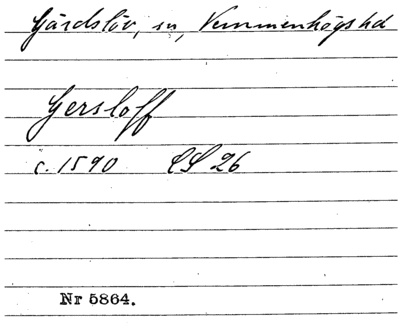 Gärdslöv, sn, Vemmenhögs hd
Gersloff
c. 1590 LS 26
Nr 5864.